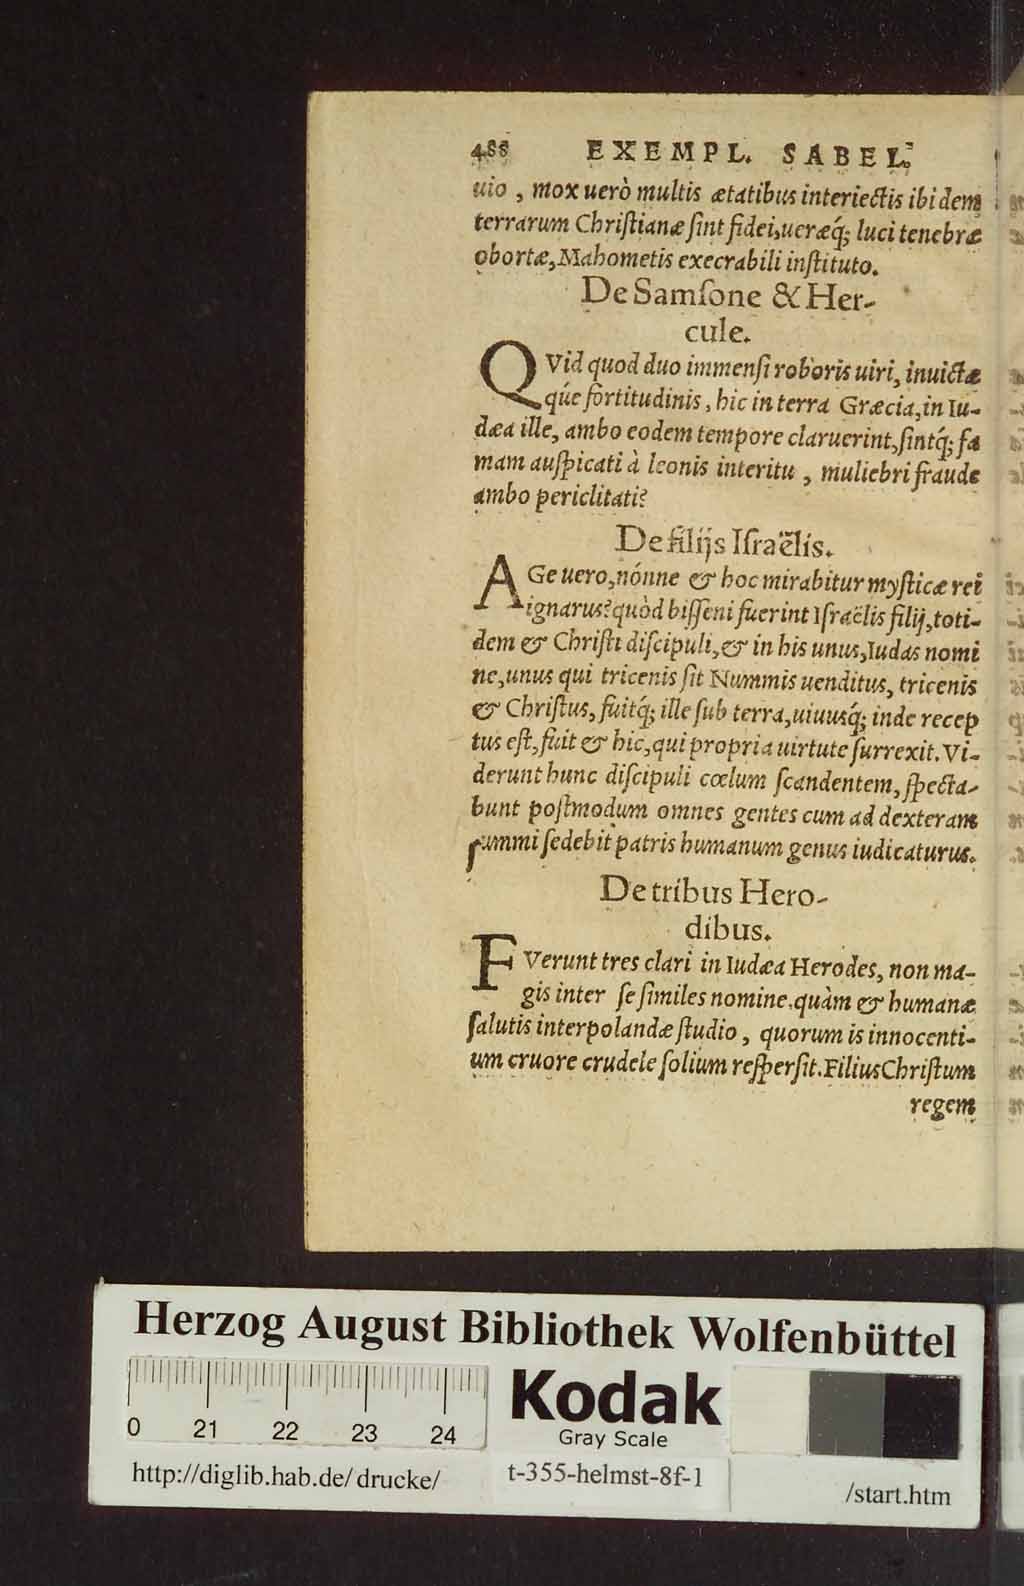 488 EXEMPL. SABEL.
uio, mox uerò multis ætatibus interiectis ibidem
terrarum Chriſtianæ ſint fidei, ueræq́; luci tenebræ
obortæ, Mahometis execrabili inſtituto.
De Samſone & Her-
cule.
QVid quod duo immenſi roboris uiri, inuictæ
qúe fortitudinis, hic in terra Græcia, in Iu-
dæa ille, ambo eodem tempore claruerint, ſintq́; fa
mam auſpicati à leonis interitu, muliebri fraude
ambo periclitati?
De filijs Iſraëlis.
AGe uero, nónne & hoc mirabitur myſticæ rei
ignarus? quòd biſſeni fuerint Iſraëlis filij, toti-
dem & Chriſti diſcipuli, & in his unus, Iudas nomi
ne, unus qui tricenis ſit Nummis uenditus, tricenis
& Chriſtus, fuitq́; ille ſub terra, uiuusq́; inde recep
tus eſt, fuit & hic, qui propria uirtute ſurrexit. Vi-
derunt hunc diſcipuli cœlum ſcandentem, ſpecta-
bunt poſtmodum omnes gentes cum ad dexteram
ſummi ſedebit patris humanum genus iudicaturus.
De tribus Hero-
dibus.
FVerunt tres clari in Iudæa Herodes, non ma-
gis inter ſe ſimiles nomine, quàm & humanæ
ſalutis interpolandæ ſtudio, quorum is innocenti-
um cruore crudele ſolium reſperſit. Filius Chriſtum
regem
Herzog August Bibliothek Wolfenbüttel
0 21 22 23 24
Kodak
Gray Scale
http://diglib.hab.de/drucke/ t-355-helmst-8f-1 /start.htm